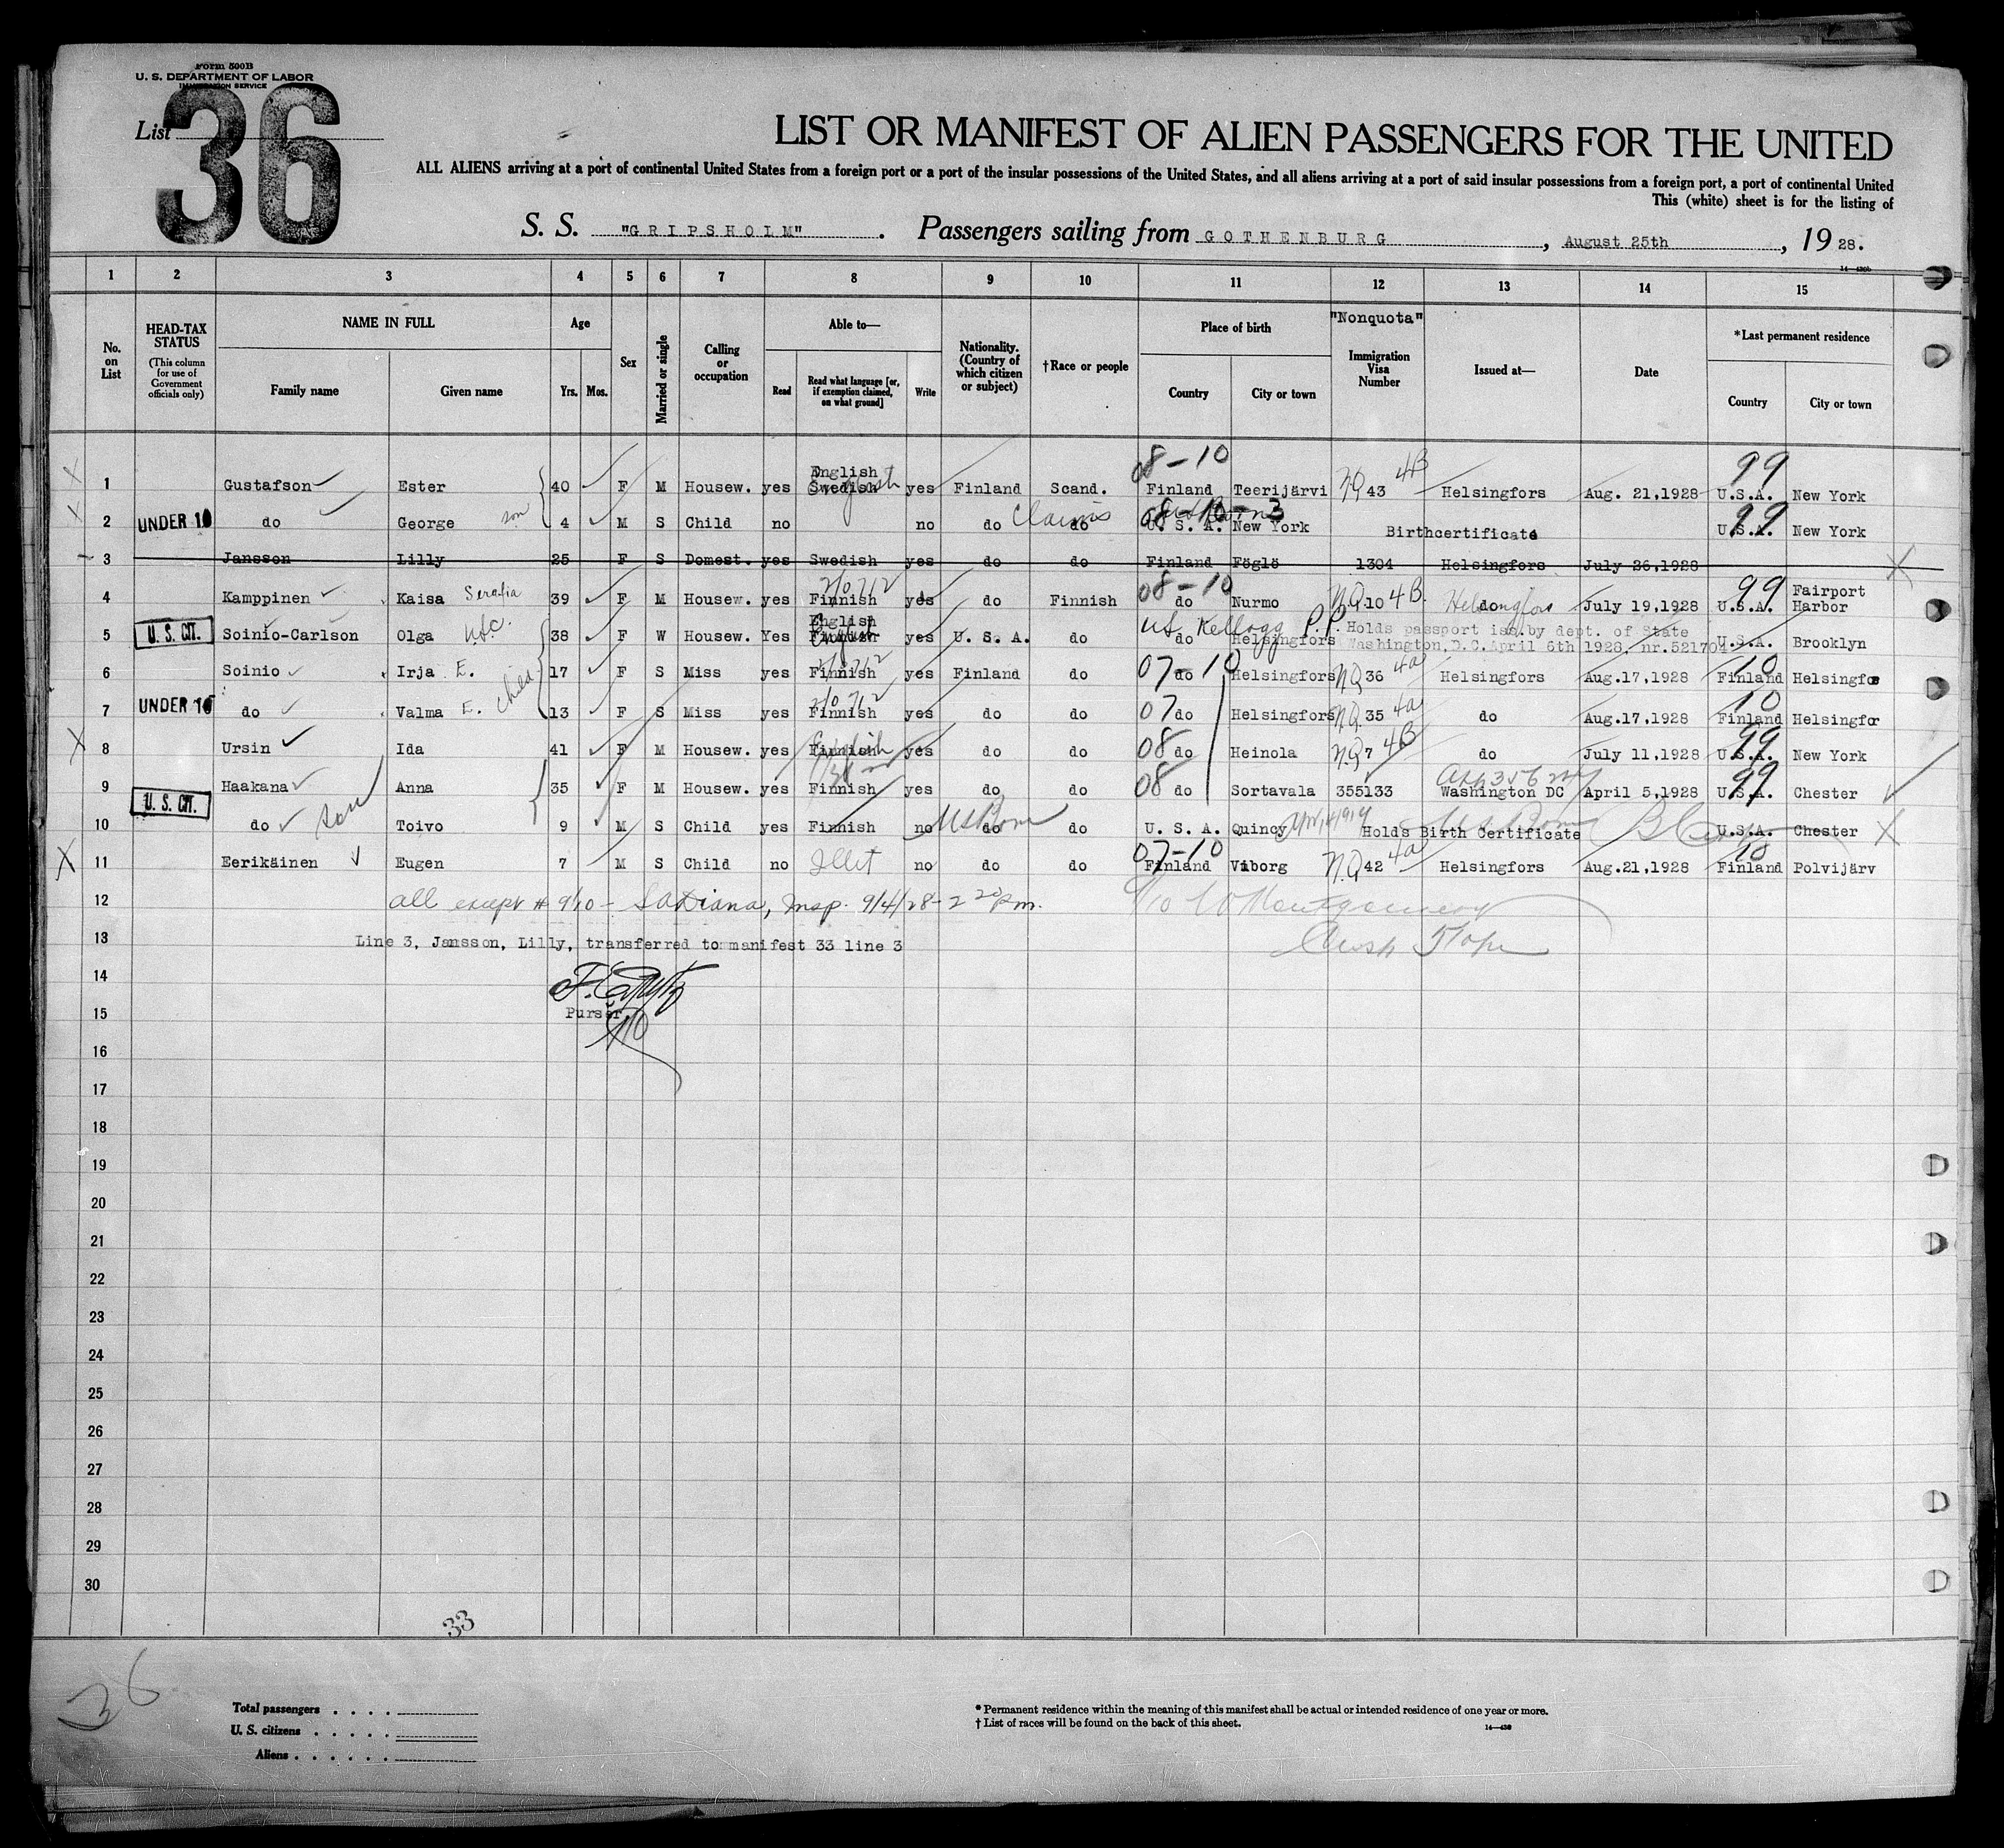 Form 500B
U. S. DEPARTMENT OF LABOR
IMMIGRATION SERVICE
List 36
LIST OR MANIFEST OF ALIEN PASSENGERS FOR THE UNITED
ALL ALIENS arriving at a port of continental United States from a foreign port or a port of the insular possessions of the United States, and all aliens arriving at a port of said insular possessions from a foreign port, a port of continental United
This (white) sheet is for the listing of
S. S. "GRIPSHOLM". Passengers sailing from GOTHENBURG, August 25th, 1928.
14-430b
1 2 3 4 5 6 7 8 9 10 11 12 13 14 15
No. on List
HEAD-TAX STATUS
(This column for use of Government officials only)
NAME IN FULL
Family name Given name
Age
Yrs. Mos.
Sex
Married or single
Calling or occupation
Able to—
Read Read what language [or, if exemption claimed, on what ground] Write
Nationality. (Country of which citizen or subject)
†Race or people
Place of birth
Country City or town
"Nonquota"
Immigration Visa Number
Issued at—
Date
*Last permanent residence
Country City or town
08-10 99
1 Gustafson Ester 40 F M Housew. yes English Swedish yes Finland Scand. Finland Teerijärvi NQ 43 4B Helsingfors Aug. 21,1928 U.S.A. New York
2 UNDER 16 do George son 4 M S Child no no do Claims do U. S. A. New York Birthcertificate 99 U.S.A. New York
3 Jansson Lilly 25 F S Domest. yes Swedish yes do do Finland Föglö 1304 Helsingfors July 26,1928
4 Kamppinen Kaisa Serafia 39 F M Housew. yes Finnish yes do Finnish 08-10 do Nurmo NQ 10 4B Helsingfors do July 19,1928 99 U.S.A. Fairport Harbor
5 U. S. CIT. Soinio-Carlson Olga 38 F W Housew. Yes English Finnish yes U. S. A. do US Kellogg P.P. do Helsingfors Holds passport iss.by dept. of State Washington,D.C.April 6th 1928, nr.521704 U.S.A. Brooklyn
6 Soinio Irja E. 17 F S Miss yes Finnish yes Finland do 07-10 do Helsingfors NQ 36 4a Helsingfors Aug.17,1928 10 Finland Helsingfors
7 UNDER 16 do Valma E. child 13 F S Miss yes Finnish yes do do 07 do Helsingfors NQ 35 4a do Aug.17,1928 10 Finland Helsingfor
8 Ursin Ida 41 F M Housew. yes Finnish yes do do 08 do Heinola NQ 7 4B do July 11,1928 99 U.S.A. New York
9 Haakana Anna 35 F M Housew. yes Finnish yes do do 08 do Sortavala 355133 Washington DC April 5,1928 99 U.S.A. Chester
10 U. S. CIT. do son Toivo 9 M S Child yes Finnish no US Born do do U. S. A. Quincy Holds Birth Certificate US Born U.S.A. Chester
11 Eerikäinen Eugen 7 M S Child no Illit no do do 07-10 Finland Viborg N.Q 42 4a Helsingfors Aug.21,1928 10 Finland Polvijärv
12 all except # 9/10 - Insp. 9/4/28 - 2 20 pm. 9/10 Montgomery
13 Line 3, Jansson, Lilly, transferred to manifest 33 line 3
14
15 Purser.
16
17
18
19
20
21
22
23
24
25
26
27
28
29
30
33
36
Total passengers . . . .
U. S. citizens . . . . .
Aliens . . . . . .
* Permanent residence within the meaning of this manifest shall be actual or intended residence of one year or more.
† List of races will be found on the back of this sheet.
14-430